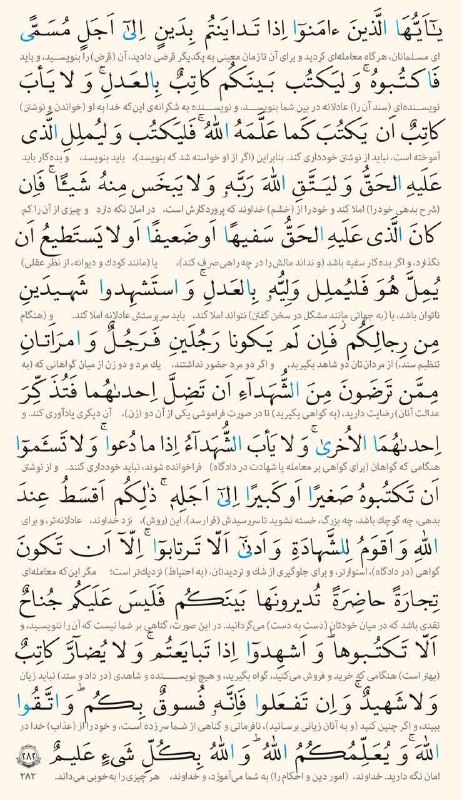 يـٰٓاَيُّهَا الَّذينَ ءامَنوٓا اِذا تَدايَنتُم بِدَينٍ اِلىٰٓ اَجَلٍ مُسَمًّى
ای مسلمانان، هرگاه معامله‌ای کردید و برای آن تا زمان معینی به یکدیگر قرضی دادید، آن (قرض) را بنویسید، و باید
فَاكتُبوهُ ۚ وَ ليَكتُب بَينَكُم كاتِبٌ بِالعَدلِ ۚ وَ لا يَأبَ
نویسنده‌ای (سند آن را) عادلانه در بین شما بنویسد، و نویسنده به شکرانه‌ی این‌که خدا به او (خواندن و نوشتن)
كاتِبٌ اَن يَكتُبَ كَما عَلَّمَهُ اللهُ ۚ فَليَكتُب وَ ليُملِلِ الَّذى
آموخته است، نباید از نوشتن خودداری کند. بنابراین (اگر از او خواسته شد که بنویسد)، باید بنویسد، و بده‌کار باید
عَلَيهِ الحَقُّ وَ ليَتَّقِ اللهَ رَبَّهُ وَ لا يَبخَس مِنهُ شَيـًٔا ۚ فَاِن
(شرح بدهی خود را) املا کند و خود را از (خشم) خداوند که پروردگارش است، در امان نگه دارد و چیزی از آن را کم
كانَ الَّذى عَلَيهِ الحَقُّ سَفيهًا اَو ضَعيفًا اَو لا يَستَطيعُ اَن
نگذارد، و اگر بده‌کار سفیه باشد (و نداند مالش را در چه راهی صرف کند)، یا (مانند کودک و دیوانه، از نظر عقلی)
يُمِلَّ هُوَ فَليُملِل وَلِيُّهُ بِالعَدلِ ۚ وَ استَشهِدوا شَهيدَينِ
ناتوان باشد، یا (به جهاتی مانند مشکل در سخن گفتن) نتواند املا کند، باید سرپرستش عادلانه املا کند. و (هنگام
مِن رِجالِكُم ۖ فَاِن لَم يَكونا رَجُلَينِ فَرَجُلٌ وَ امرَاَتانِ
تنظیم سند)، از مردانتان دو شاهد بگیرید، و اگر دو مرد حضور نداشتند، یک مرد و دو زن از میان گواهانی که (به
مِمَّن تَرضَونَ مِنَ الشُّهَدآءِ اَن تَضِلَّ اِحدىٰهُما فَتُذَكِّرَ
عدالت آنان) رضایت دارید، (به گواهی بگیرید) تا در صورت فراموشی یکی از آن دو (زن)، آن دیگری یادآوری کند. و
اِحدىٰهُمَا الاُخرىٰ ۚ وَ لا يَأبَ الشُّهَدآءُ اِذا ما دُعوا ۚ وَ لا تَسـَٔموٓا
هنگامی که گواهان (برای گواهی بر معامله یا شهادت در دادگاه) فراخوانده شوند، نباید خودداری کنند. و از نوشتن
اَن تَكتُبوهُ صَغيرًا اَو كَبيرًا اِلىٰٓ اَجَلِهِ ۚ ذٰلِكُم اَقسَطُ عِندَ
بدهی، چه کوچک باشد، چه بزرگ، خسته نشوید تا سررسیدش (فرا رسد). این (روش)، نزد خداوند، عادلانه‌تر، و برای
اللهِ وَ اَقوَمُ لِلشَّهادَةِ وَ اَدنىٰٓ اَلّا تَرتابوٓا ۖ اِلّآ اَن تَكونَ
گواهی (در دادگاه)، استوارتر، و برای جلوگیری از شک و تردیدتان، (به احتیاط) نزدیک‌تر است؛ مگر این‌که معامله‌ای
تِجارَةً حاضِرَةً تُديرونَها بَينَكُم فَلَيسَ عَلَيكُم جُناحٌ
نقدی باشد که در میان خودتان (دست به دست) می‌گردانید. در این صورت، گناهی بر شما نیست که آن را ننویسید، و
اَلّا تَكتُبوها ۗ وَ اَشهِدوٓا اِذا تَبايَعتُم ۚ وَ لا يُضآرَّ كاتِبٌ
(بهتر است) هنگامی که خرید و فروش می‌کنید، گواه بگیرید، و هیچ نویسنده و شاهدی (در داد و ستد) نباید زیان
وَ لا شَهيدٌ ۚ وَ اِن تَفعَلوا فَاِنَّهُ فُسوقٌ بِكُم ۗ وَ اتَّقُوا
ببیند، و اگر چنین کنید (و به آنان زیانی برسانید)، نافرمانی و گناهی از شما سر زده است، و خود را از (عذاب) خدا در
اللهَ ۖ وَ يُعَلِّمُكُمُ اللهُ ۗ وَ اللهُ بِكُلِّ شَىءٍ عَليمٌ ﴿٢٨٢﴾
امان نگه دارید. خداوند، (امور دین و احکام را) به شما می‌آموزد، و خداوند، هر چیزی را به‌خوبی می‌داند. ۲۸۲